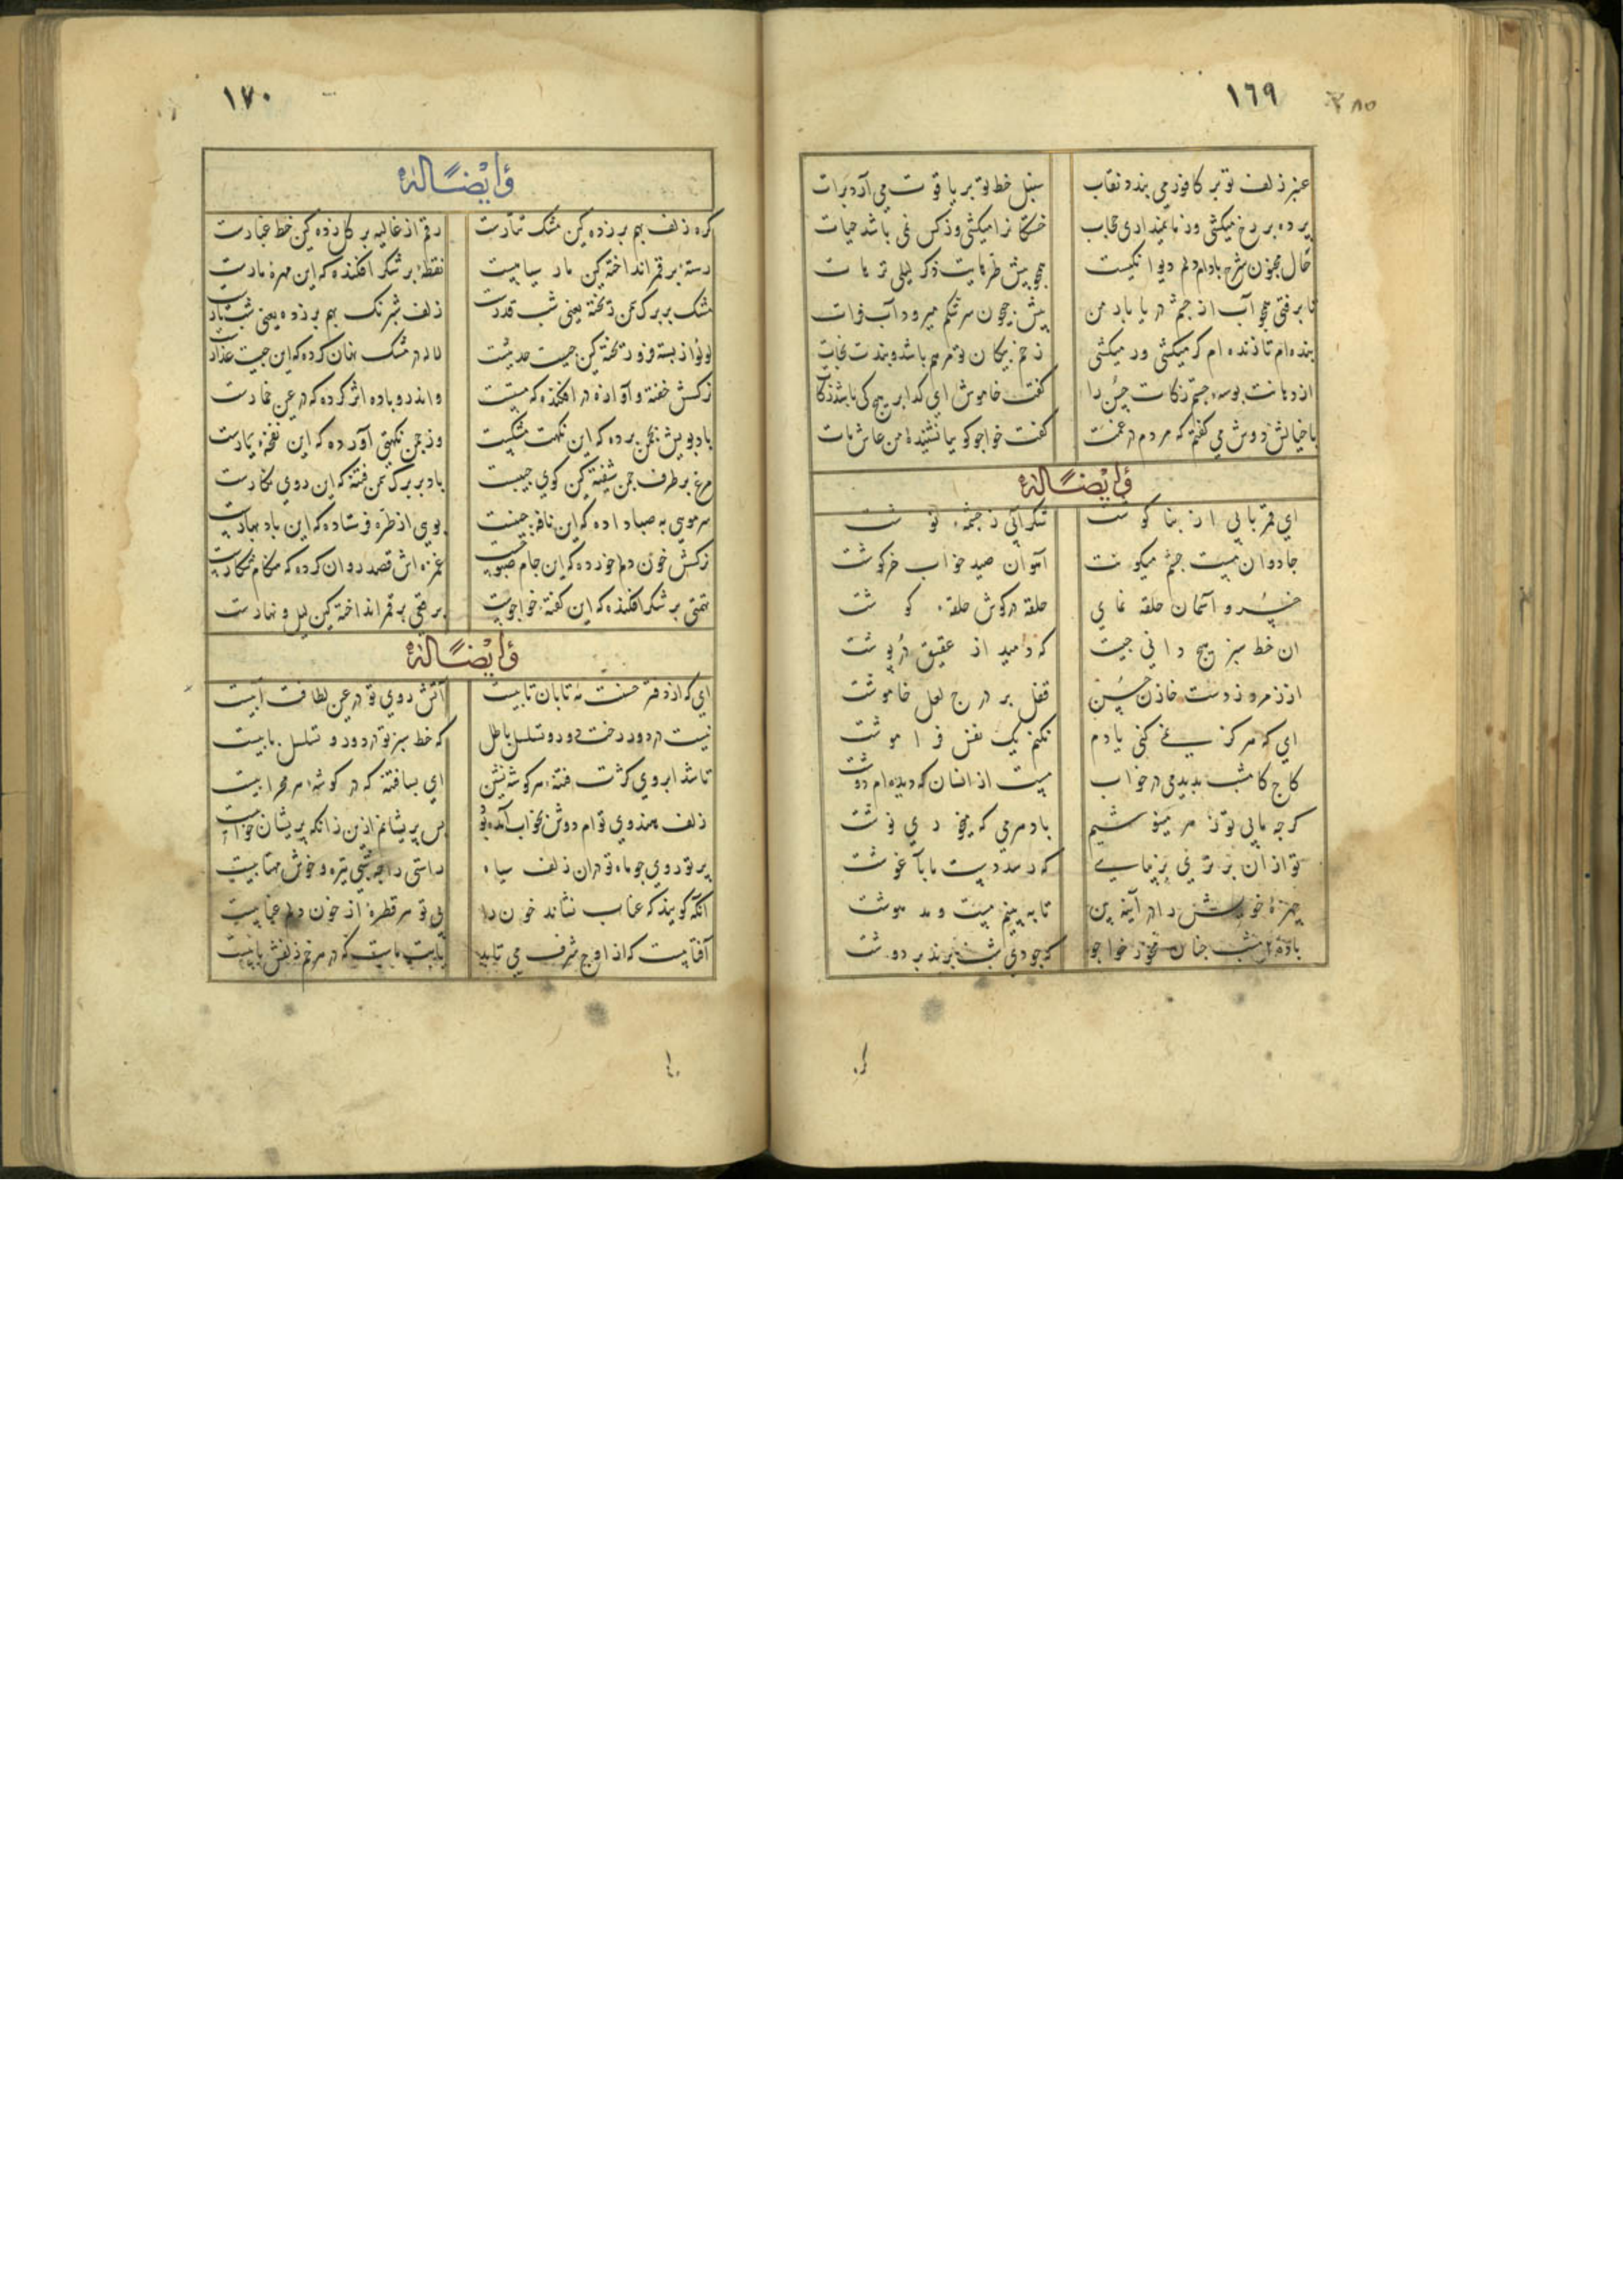 ١٦٩
عنبر زلف تو بر کافور می بندد نقاب سنبل خط تو بر یاقوت می آرد برات
پرده بر رخ میکشی وز ما نمیداری حجاب خستکانرا میکشی وز کس نمی باشد حیات
حال مجنون شرح دادم دلم دیوانکیست همچو پیش طره‌ایت ذکر لیلی ترهات
تا برفتی همچو آب از چشم دریا بار من پیش جیحون سرشکم میرود آب فرات
بنده ام تا زنده ام کر میکشی ور میکشی زخم پیکان تو مرهم باشد و بندت نجات
از دهانت بوسه جستم زکات حسن را کفت خاموش ای کدا بر هیچ کی باشد زکات
با خیالش دوش می کفتم که مردم در غمت کفت خواجو کویا نشنیدۀ من عاش مات
وایضًا له
ای قمر تابی از بنا کوشت شکر آبی ز چشمه نوشت
جادوان مست چشم میکونت آهوان صید خواب خرکوشت
خسرو آسمان حلقه نمای حلقه در کوش حلقه کوشت
ان خط سبز هیچ دانی چیست که دمید از عقیق در پوشت
از زمرد زدست خازن حسن قفل بر درج لعل خاموشت
ای که هرکز نمی کنی یادم نکنم یک نفس فراموشت
کاج کامشب بدیدمی در خواب مست از انسان که دیده ام دوشت
کرچه مایی تو ز هر می نوشیم باد هر می که میخوری نوشت
تو از ان برتری بزیبایی که رسد دست ما بآغوشت
چهرۀ خویش را در آینه بین تا به بینم مست و مدهوشت
بادۀ امشب چنان مخور خواجو که چو دی شب برند بر دوشت
١٧٠
وایضًا له
کره زلف بهم بر زده کین مشک تتارست رقم از غالیه بر کل زده کین خط غبارست
رستۀ بر قمر انداخته کین مار سیاهیست نقطۀ بر شکر افکنده که این مهرۀ مارست
مشک بر برک سمن ریخته یعنی شب قدرست زلف شبرنک بهم بر زده یعنی شب تارست
لولو از پسته فرو ریخته کین چیست حدیثست لاله در مشک نهان کرده که این چیست عذارست
نرکسش خفته و آوازه در افکنده که مستست واندرو باده اثر کرده که در عین خمارست
باد بویش بچمن برده که این نکهت مشکست وز چمن نکهتی آورده که این نفحۀ یارست
مرغ بر طرف چمن شیفته کین کوی حبیبست باد بر برک سمن فتنه که این روی نکارست
سر مویی به صبا داده که این نافۀ چینست بویی از طره فرستاده که این باد بهارست
نرکسش خون دلم خورده که این جام صبوحست غمزه اش قصد روان کرده که هنکام شکارست
تهمتی بر شکر افکنده که این کفتۀ خواجوست برقعی بر قمر انداخته کین لیل و نهارست
وایضًا له
ای که از دفتر حسنت مه تابان تابیست آتش روی تو در عین لطافت آبیست
نیست در دور رخت دور و تسلسل باطل که خط سبز تو از دور و تسلسل بابیست
تا شد ابروی کژت فتنۀ هر کوشه نشین ای بسا فتنه که در کوشۀ هر محرابیست
زلف هندوی توام دوش بخواب آمده بود بس پریشانم ازین زانکه پریشان خوابیست
پرتو روی چو ماه تو در ان زلف سیاه راستی را چه شبی تیره و خوش مهتابیست
انکه کویند که عناب نشاند خون را بی تو هر قطرۀ از خون دلم عنابیست
آفتابیست که از اوج شرف می تابد یا بت ماست که در هر خم زلفش تابیست